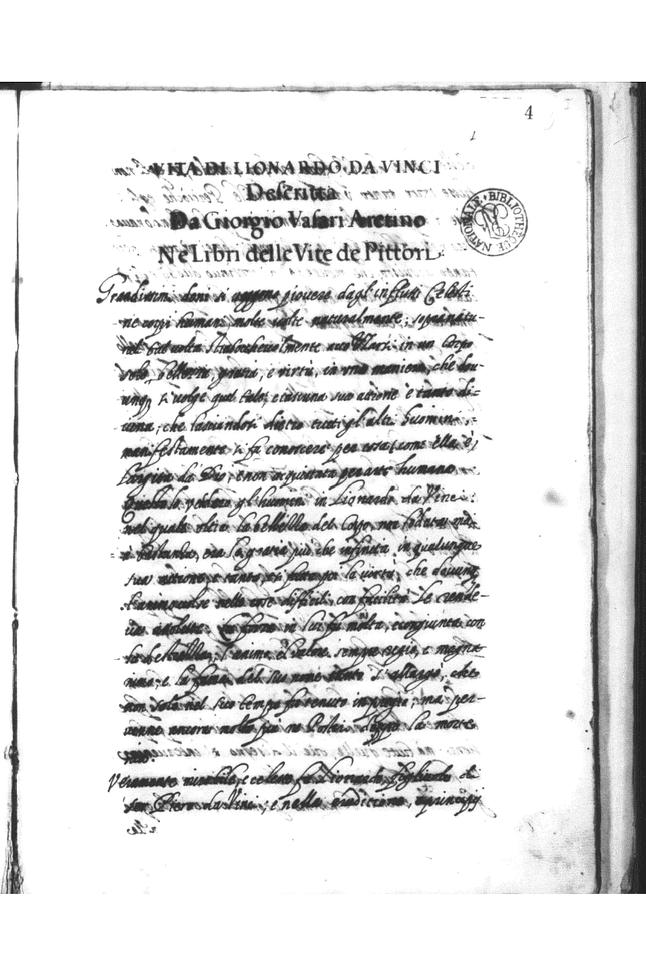 4
VITA DI LIONARDO DA VINCI
Descritta
Da Giorgio Vasari Aretino
Ne Libri delle Vite de Pittori.
BIBLIOTHEQUE NATIONALE
Grandissimi doni si veggono piovere dagl'influssi Celesti
ne corpi humani molte volte naturalmente; sopranatu-
ral talvolta strabochevolmente in un corpo
solo bellezza, grazia, e virtù, in una maniera, che dou
unq si volge quel tale, ciascuna sua azione è tanto di-
uina, che lasciandosi dietro tutti gl'altri huomini
manifestamente si fa conoscere per cosa (come ella è)
largita da Dio, e non acquistata per arte humana
Questo lo videro gl'huomini in Lionardo da Vinci:
nel quale oltre la bellezza del Corpo, non lodata mai
à bastanza, era la grazia più che infinita in qualunque
sua azione, e tanta, e si fatta poi la virtù, che dovunq
l'animo volse nelle cose difficili, con facilità le rende-
va absolute. La forza in lui fù molta, e congiunta con
la destrezza; l'animo, e'l valore sempre regio, e magna-
nimo: e la fama del suo nome tanto s'allargò, che
non solo nel suo tempo fù tenuto in pregio; ma per-
venne ancora molto più ne Posteri doppo la morte
sua.
Veramente mirabile, e celeste fu Lionardo, figliuolo di
Ser Piero da Vinci; e nella erudizione, e principij